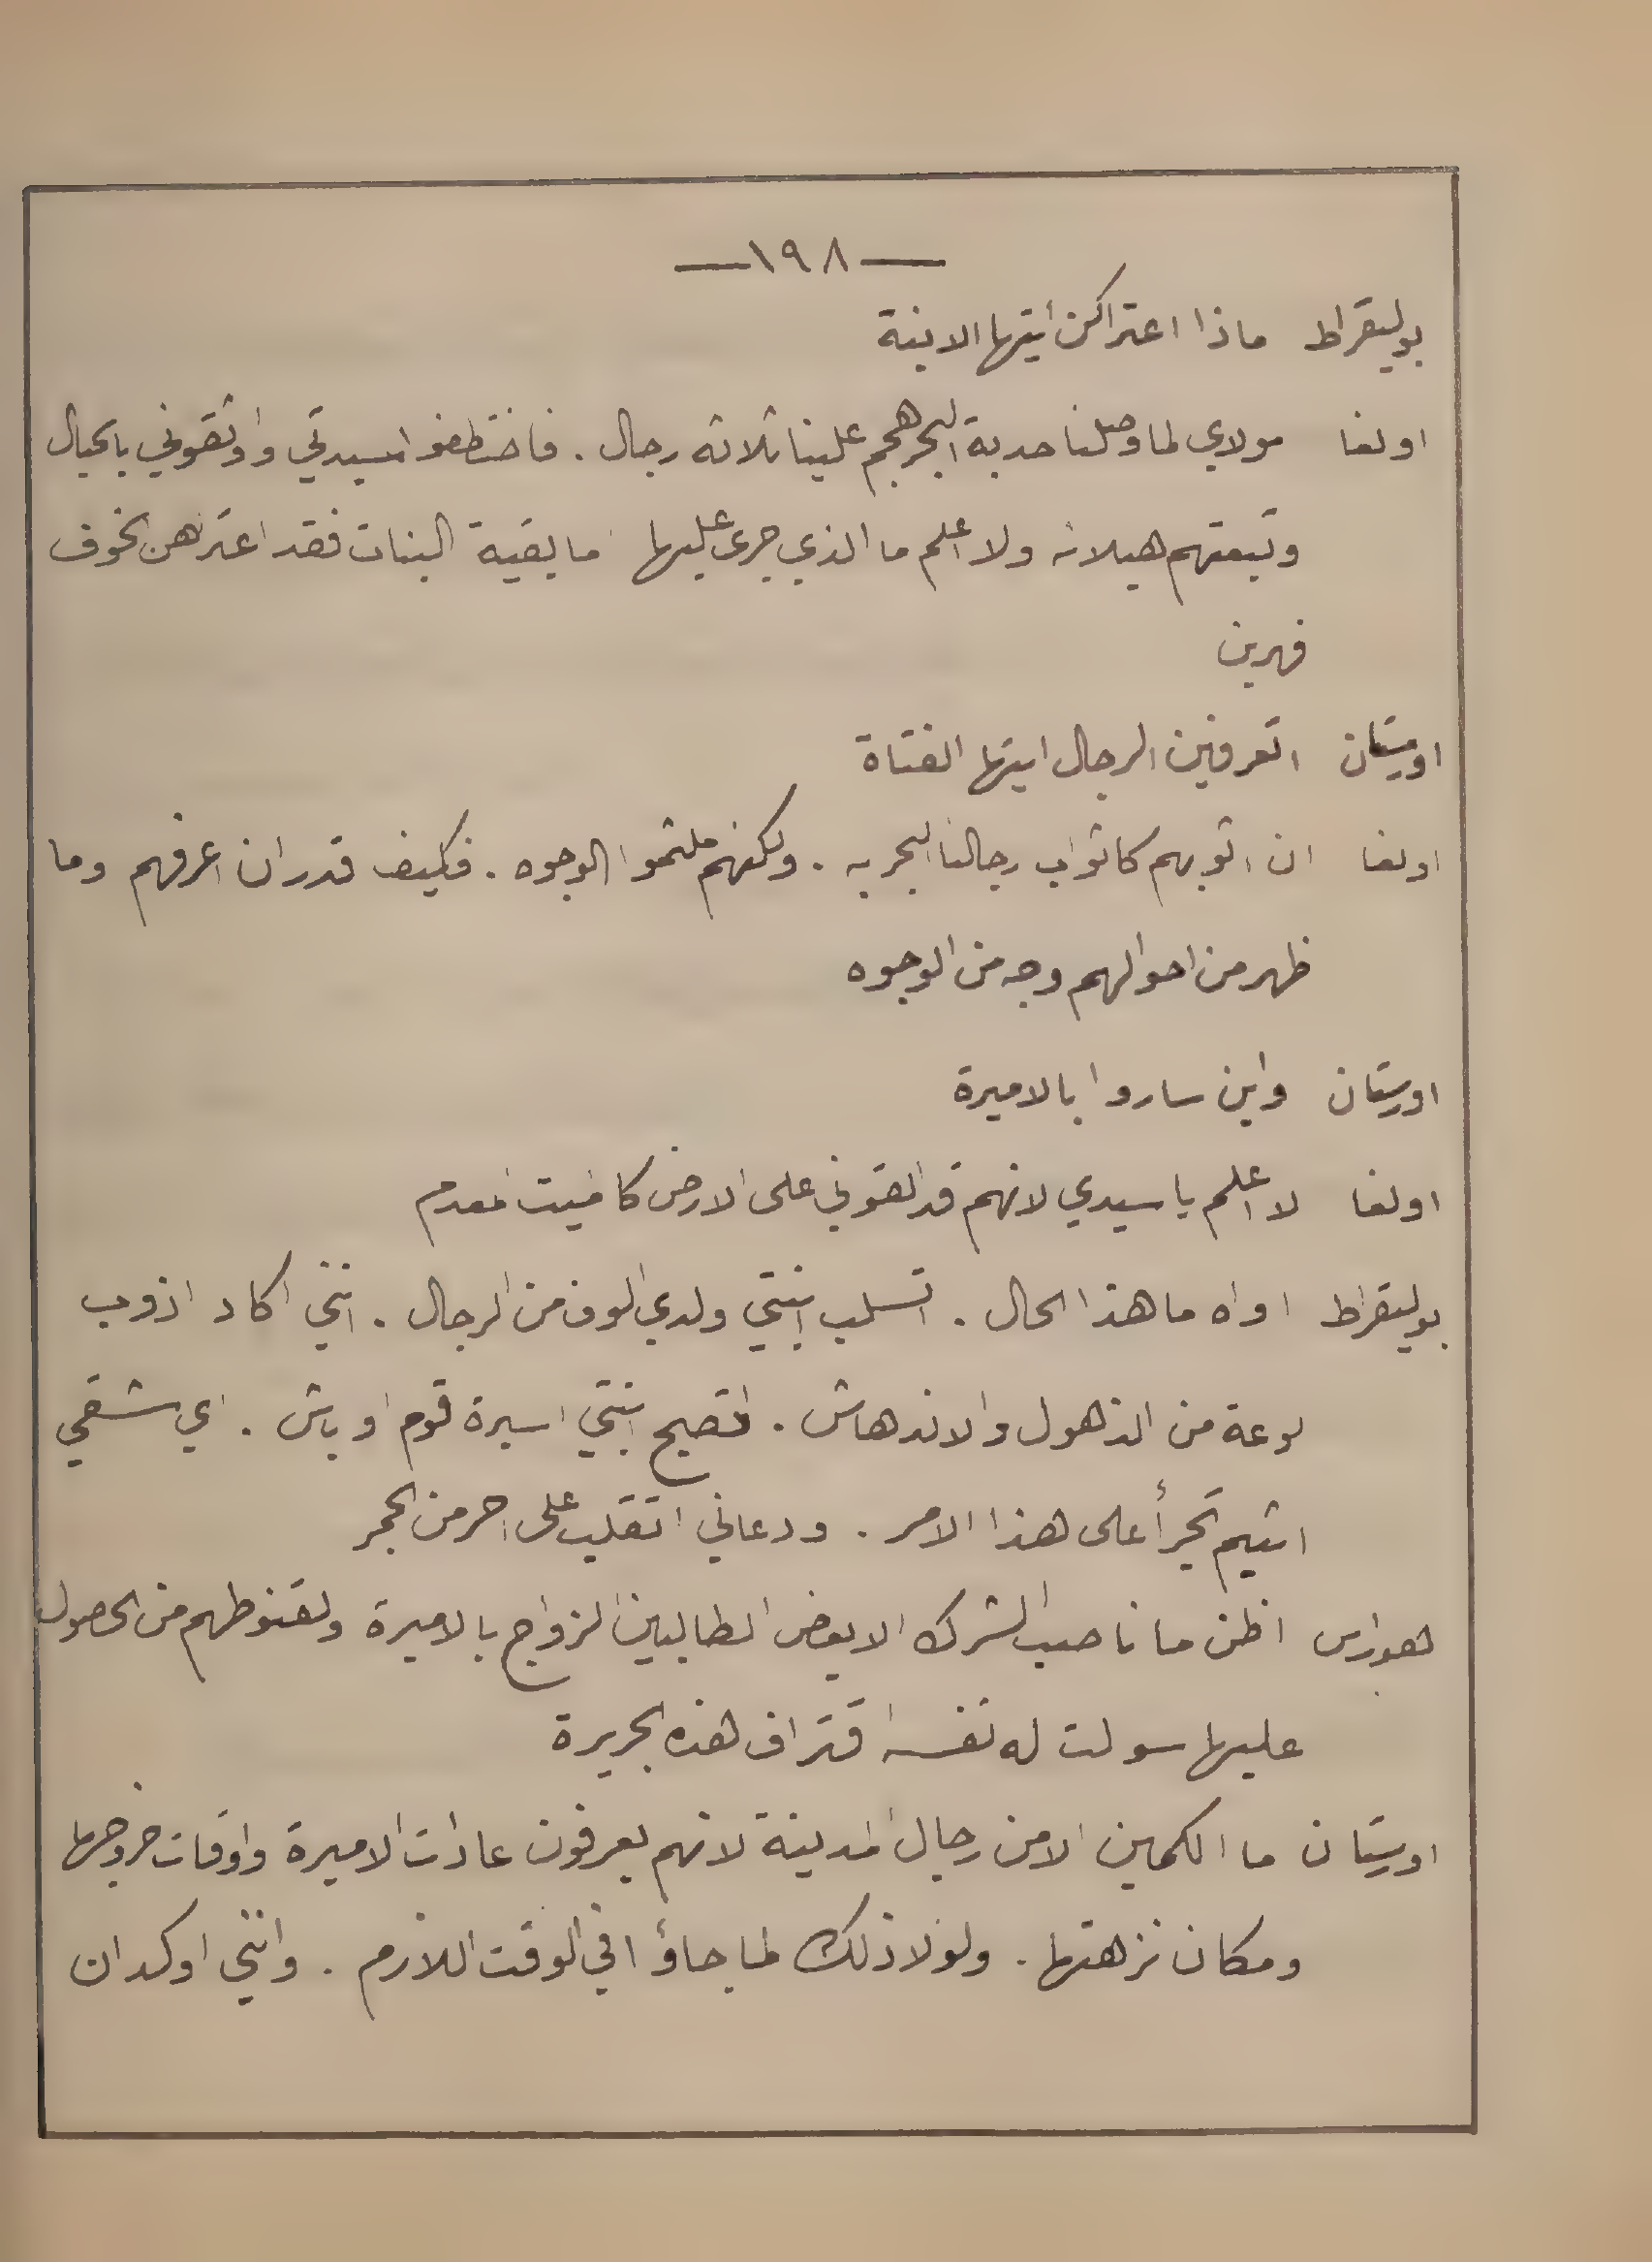 —١٩٨—
بوليقراط ماذا اعتراكن أيتها الابنة
اولفا مولاي لما وصلنا حدبة البحر هجم علينا ثلاثة رجال . فاختطفوا سيدتي واوثقوني بالحبال
وتبعتهم هيلانه ولا اعلم ما الذي جرى عليها اما بقية البنات فقد اعتراهن الخوف
فهربن
اوريستان اتعرفين الرجال ايتها الفتاة
اولفا ان اثوبهم كاثواب رجالنا البحريه . ولكنهم ملثموا الوجوه . فكيف اقدر ان اعرفهم وما
ظهر من احوالهم وجه من الوجوه
اوريستان واين ساروا بالاميرة
اولفا لا اعلم يا سيدي لانهم قد القوني على الارض كالميت المعدم
بوليقراط اواه ما هذا الحال . اتسلب ابنتي ولدي الوف من الرجال . انني اكاد اذوب
لوعة من الذهول والاندهاش . اتصبح ابنتي اسيرة قوم اوباش . اي شقي
اثيم تجرأ على هذا الامر . ودعاني اتقلب على احر من الجمر
هوارس اظن ما ناصب الشرك الا بعض الطالبين الزواج بالاميرة ولقنوطهم من الحصول
عليها سولت له نفسه اقتراف هذه الجريرة
اوريستان ما الكمين الا من رجال المدينة لانهم يعرفون عادات الاميرة واوقات خروجها
ومكان نزهتها . ولولا ذلك لما جاؤا في الوقت اللازم . وانني اوكد ان